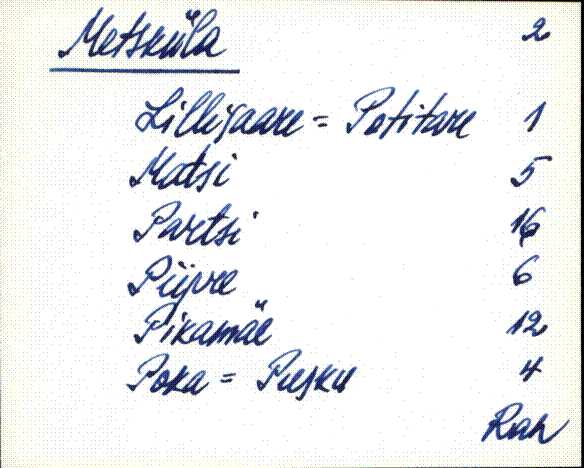 Metsküla 2
Lillisaare = Potitare 1
Matsi 5
Partsi 16
Piipree 6
Pikamäe 12
Poka = Puşku 4
Rah